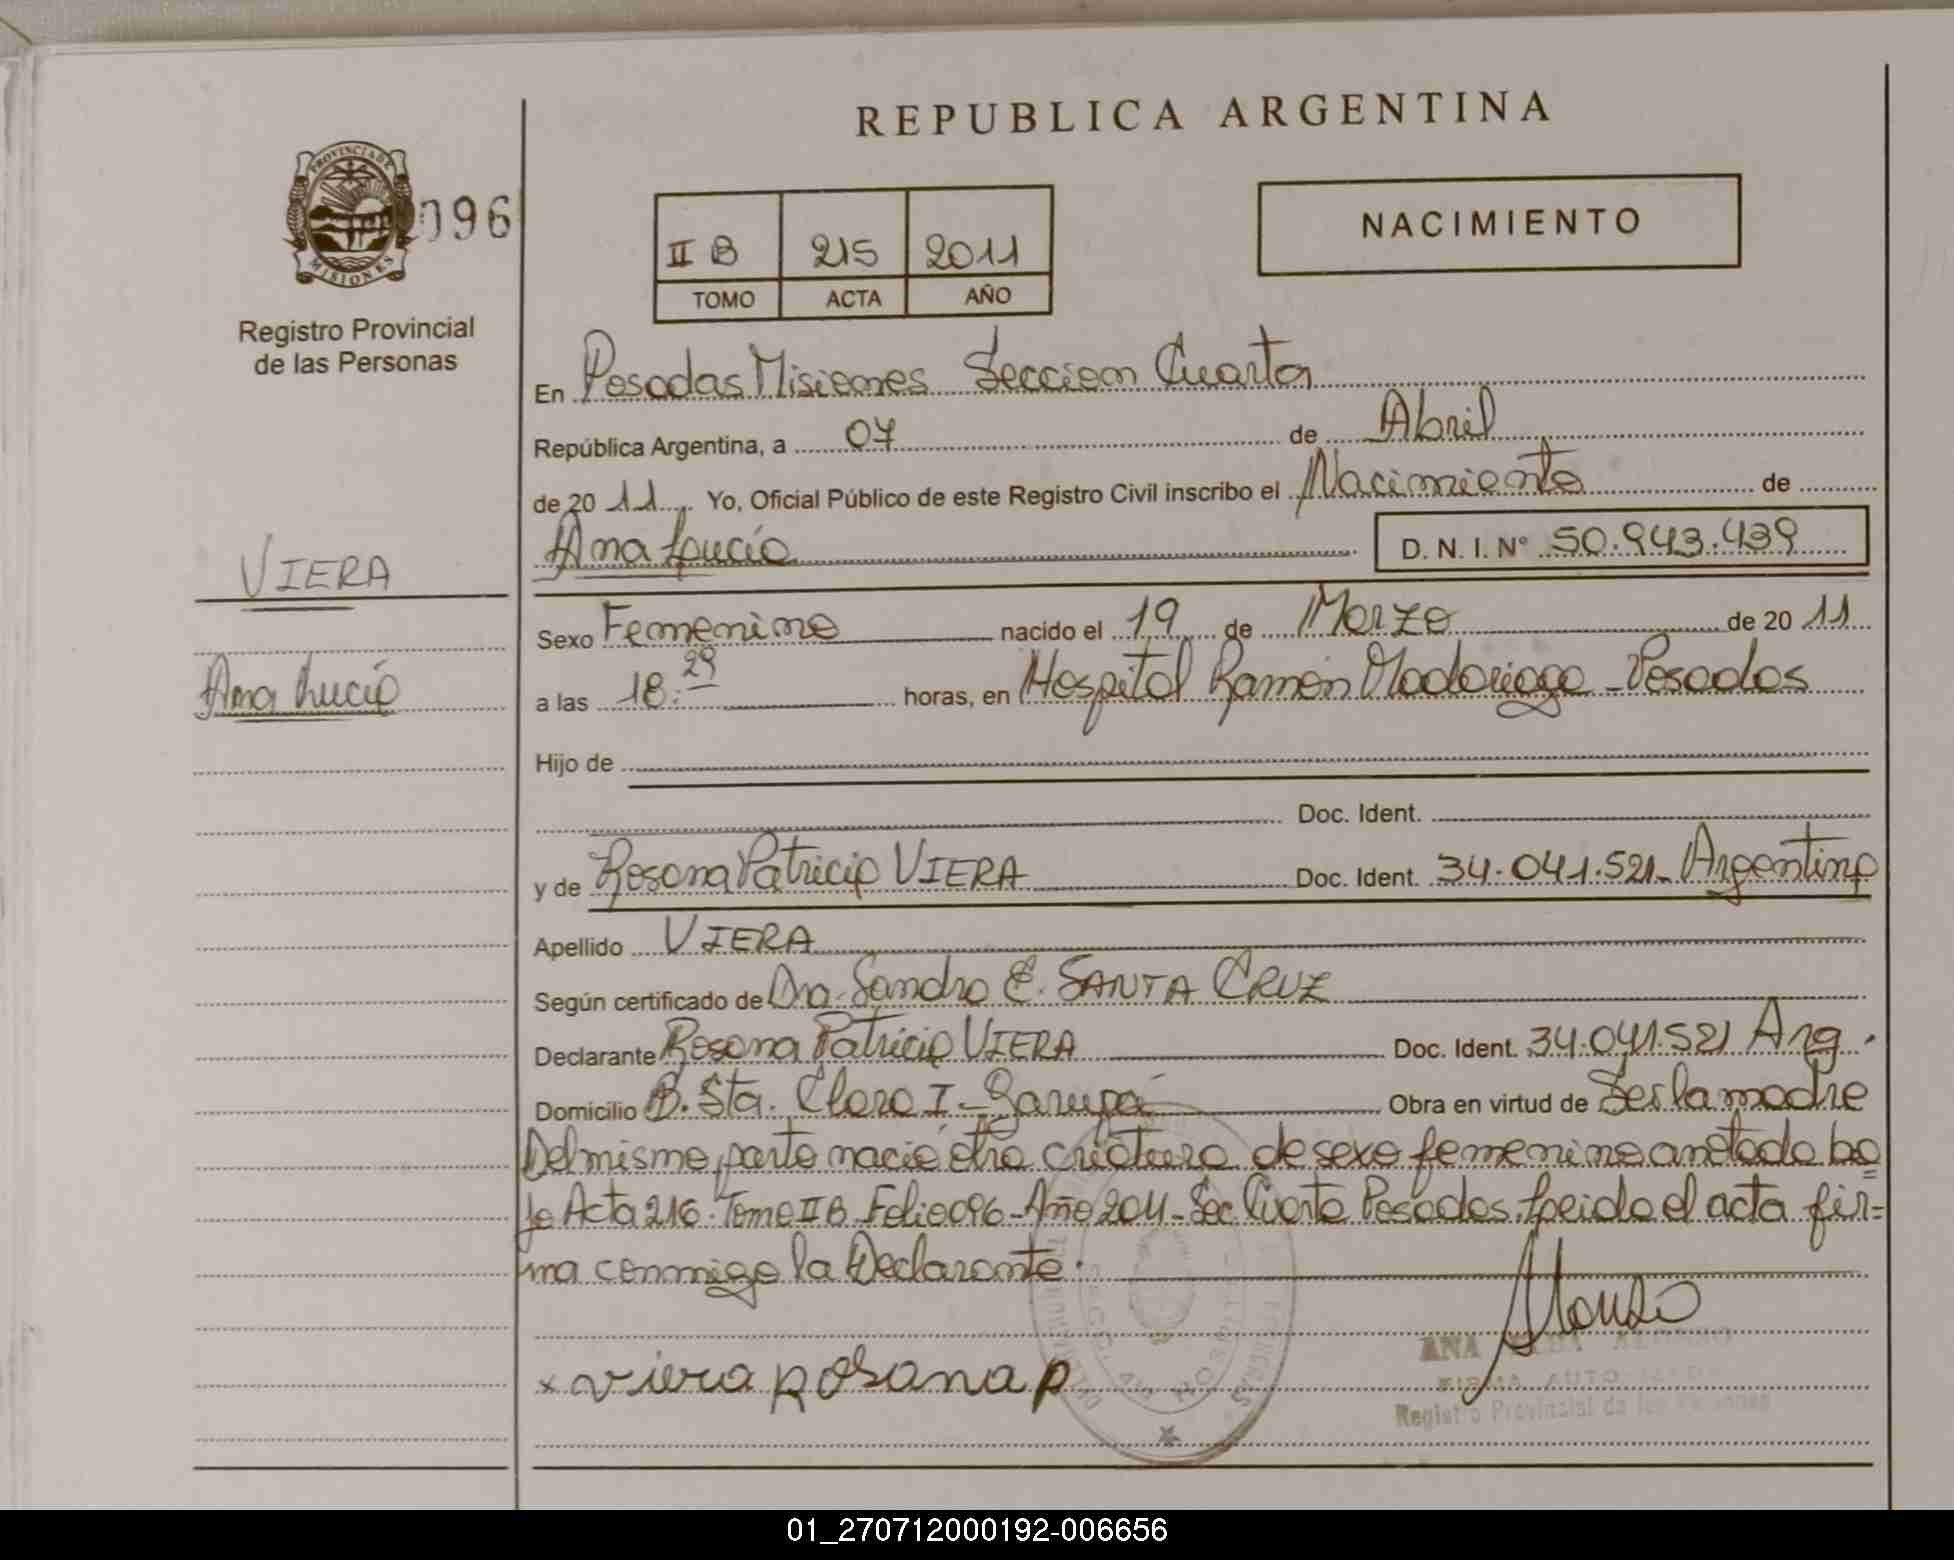 REPUBLICA ARGENTINA
PROVINCIA DE
MISIONES
096
Registro Provincial
de las Personas
II B 215 2011
TOMO ACTA AÑO
NACIMIENTO
En Posadas Misiones Seccion Cuarta
República Argentina, a 07 de Abril
de 2011 Yo, Oficial Público de este Registro Civil inscribo el Nacimiento de
Ana Lucía D. N. I. Nº 50.943.439
VIERA
Ana Lucía
Sexo Femenino nacido el 19 de Marzo de 2011
a las 18:29 horas, en Hospital Ramón Madariaga - Posadas
Hijo de
Doc. Ident.
y de Rosana Patricia VIERA Doc. Ident. 34.041.521- Argentina
Apellido VIERA
Según certificado de Dra. Sandra E. SANTA CRUZ
Declarante Rosana Patricia VIERA Doc. Ident. 34.041.521 Arg.
Domicilio B. Sta. Clara I - Garupá Obra en virtud de Ser la madre
Del mismo parto nació otra criatura de sexo femenino anotada ba=
jo Acta 216. Tomo II B Folio 096 - Año 2011 - Sec Cuarta Posadas. Leida el acta fir=
ma conmigo la Declarante.
x viera Rosana p
ANA
Registro Provincial de las Personas
01_270712000192-006656